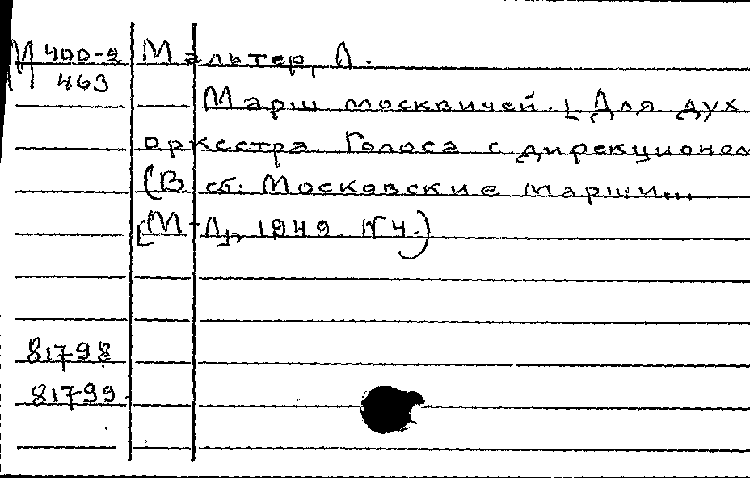 М 400-2 Мальтер, Л.
463
Марш москвичей. [Для дух
оркестра Голоса с дирекционом
(В сб: Московские марши...
[М-Л], 1949. № 4.)
81798
81799